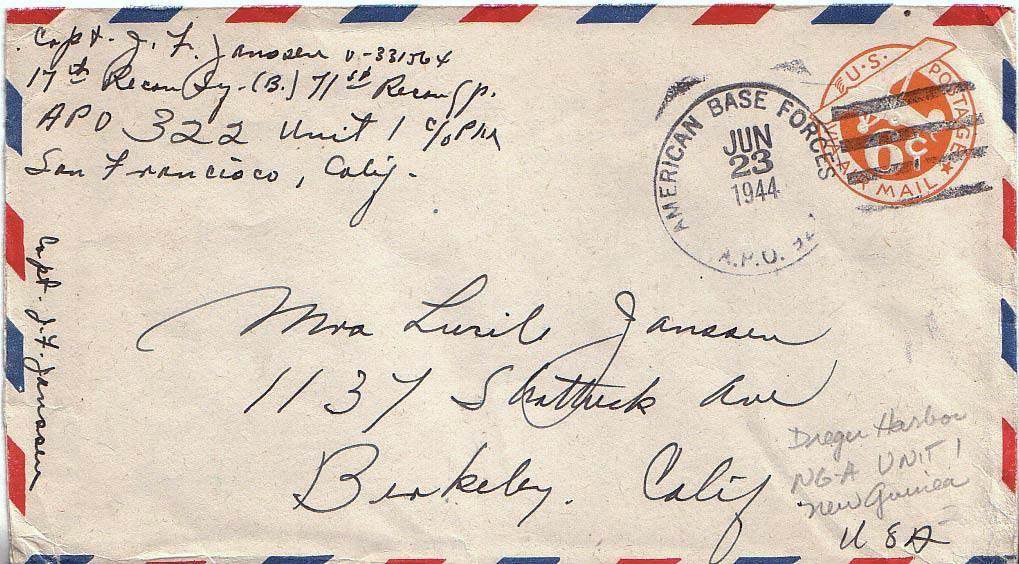 Capt. J. F. Janssen O-331564
17th Recon Sq. (B.) 71st Recon Gp.
APO 322 Unit 1 c/o PM
San Francisco, Calif.
AMERICAN BASE FORCES
JUN
23
1944
A.P.O.
U.S. POSTAGE
VIA AIR MAIL
6¢
Capt. J. F. Janssen
Mrs Lucile Janssen
1137 Shattuck Ave
Berkeley. Calif
Dreger Harbor
NG-A UNIT 1
New Guinea
USA